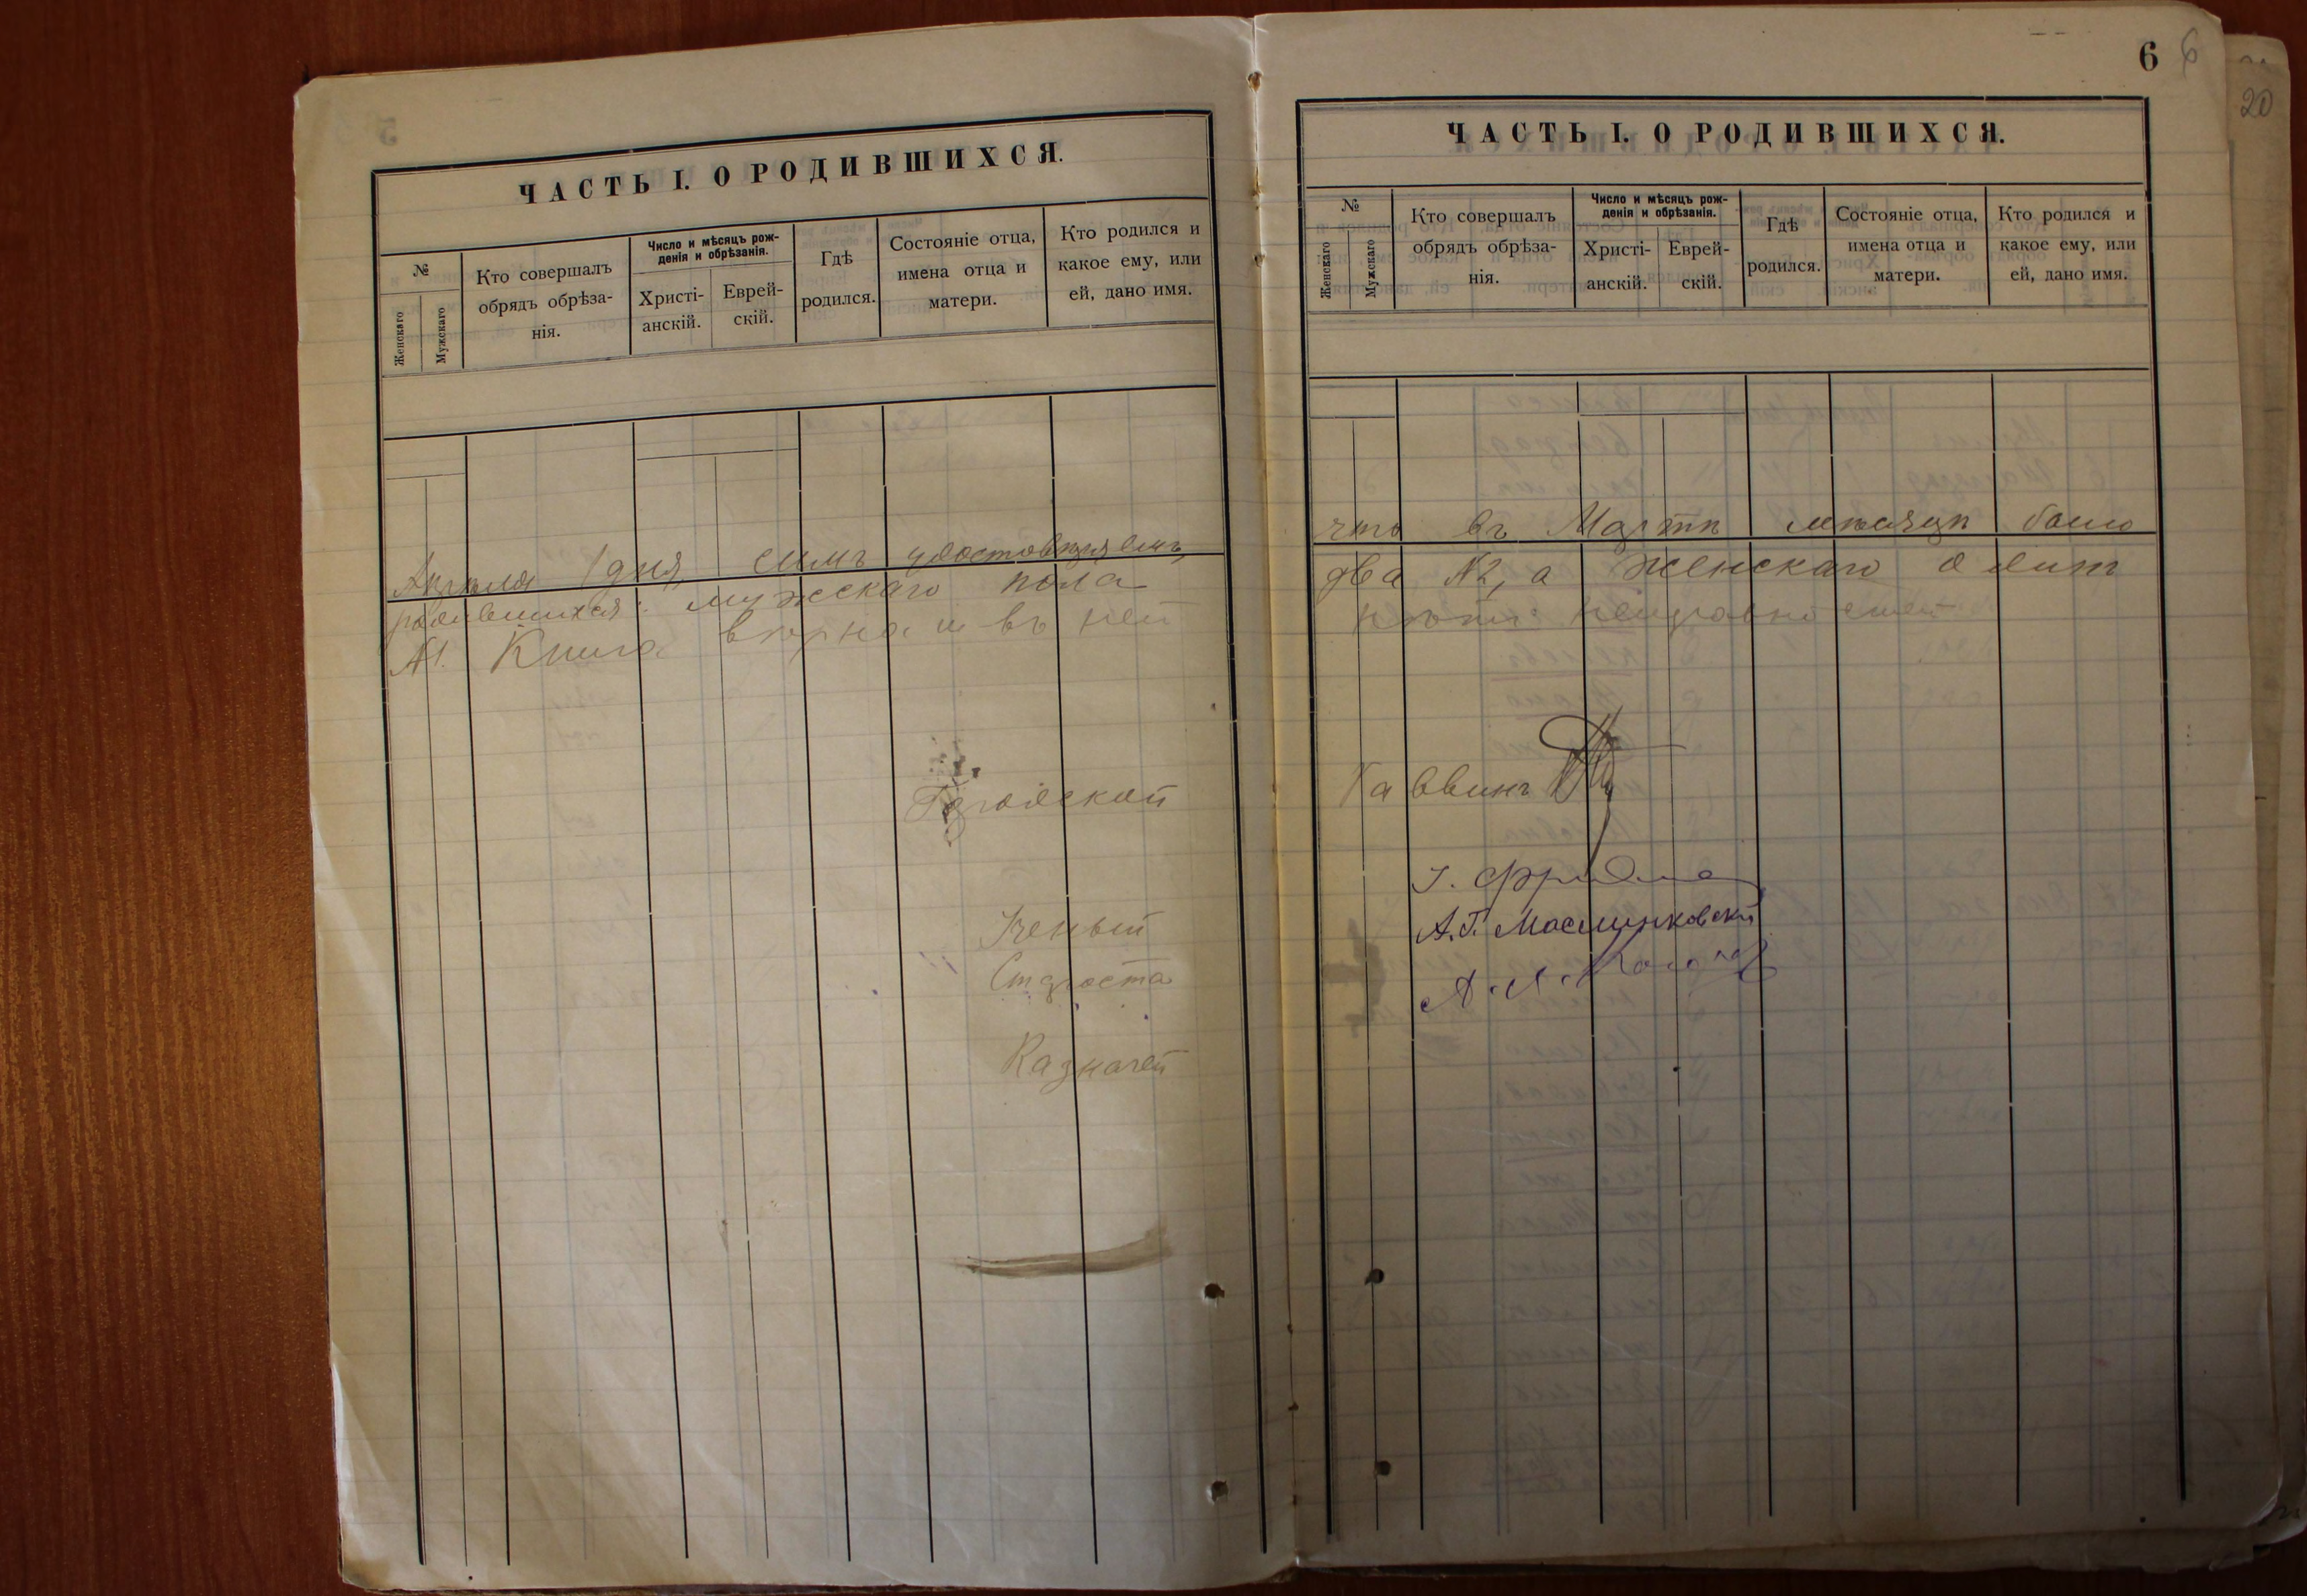 ЧАСТЬ I. О РОДИВШИХСЯ.
№
Женскаго
Мужскаго
Кто совершалъ
обрядъ обрѣза-
нія.
Число и мѣсяцъ рож-
денія и обрѣзанія.
Христі-
анскій.
Еврей-
скій.
Гдѣ
родился.
Состояніе отца,
имена отца и
матери.
Кто родился и
какое ему, или
ей, дано имя.
Апрѣля 1 дня симъ удостовѣряемъ,
родившихся: мужскаго пола
№1. Книга вѣрна и въ ней
Городской
Ученый
Староста
Казначей
6 6
20
ЧАСТЬ I. О РОДИВШИХСЯ.
№
Женскаго
Мужскаго
Кто совершалъ
обрядъ обрѣза-
нія.
Число и мѣсяцъ рож-
денія и обрѣзанія.
Христі-
анскій.
Еврей-
скій.
Гдѣ
родился.
Состояніе отца,
имена отца и
матери.
Кто родился и
какое ему, или
ей, дано имя.
что въ Мартѣ мѣсяцѣ было
два №2, а женскаго одинъ
нѣтъ неисправностей
Раввинъ
А. Г.
А.